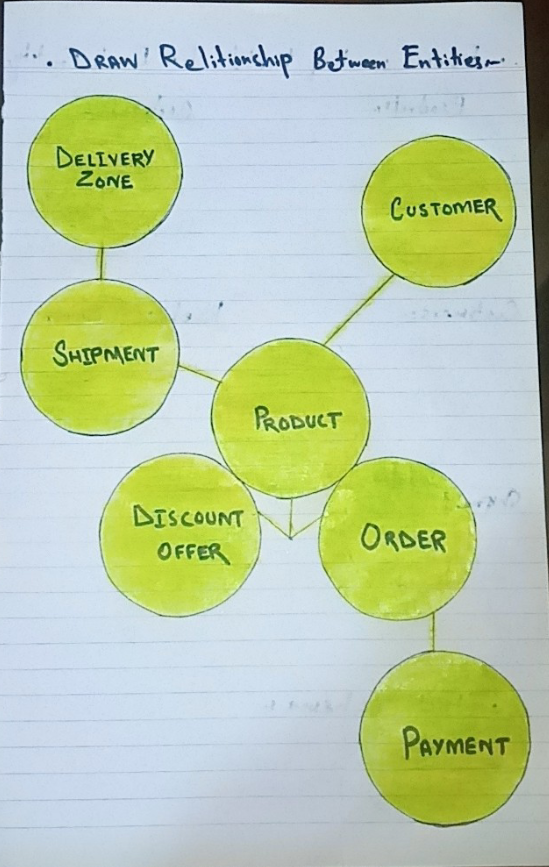 . DRAW Relitionship Between Entities
DELIVERY
ZONE
CUSTOMER
SHIPMENT
PRODUCT
DISCOUNT
OFFER
ORDER
PAYMENT